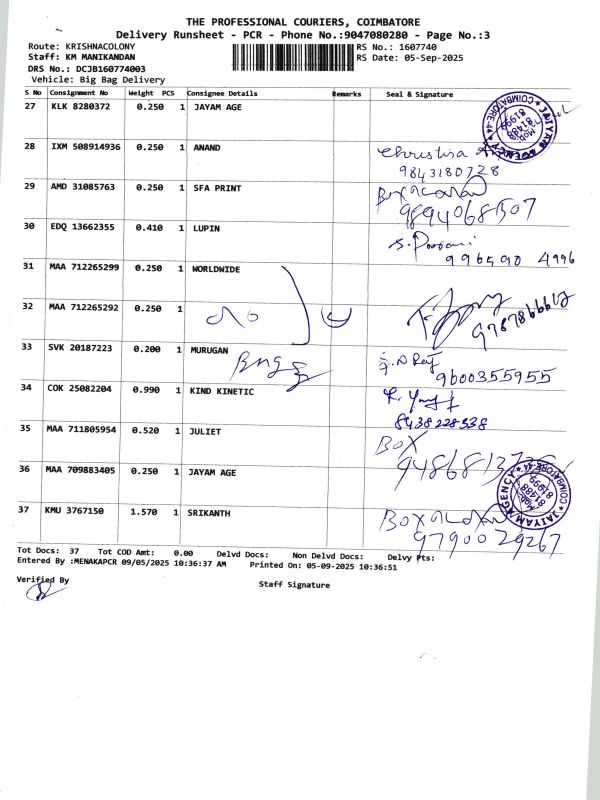 THE PROFESSIONAL COURIERS, COIMBATORE
Delivery Runsheet - PCR - Phone No.:9047080280 - Page No.:3
Route: KRISHNACOLONY RS No.: 1607740
Staff: KM MANIKANDAN RS Date: 05-Sep-2025
DRS No.: DCJB160774003
Vehicle: Big Bag Delivery
S No Consignment No Weight PCS Consignee Details Remarks Seal & Signature
27 KLK 8280372 0.250 1 JAYAM AGE
JAIYAM AGENCY COIMBATORE-44 Mob 81488 81999
28 IXM 508914936 0.250 1 ANAND
Christina
9843180728
29 AMD 31085763 0.250 1 SFA PRINT
9894068507
30 EDQ 13662355 0.410 1 LUPIN
S. Poorani
996590 4996
31 MAA 712265299 0.250 1 WORLDWIDE
32 MAA 712265292 0.250 1
33 SVK 20187223 0.200 1 MURUGAN
9600355955
34 COK 25082204 0.990 1 KIND KINETIC
8438228338
35 MAA 711805954 0.520 1 JULIET
BOX
36 MAA 709883405 0.250 1 JAYAM AGE
JAIYAM AGENCY COIMBATORE-44 Mob 81488 81999
37 KMU 3767150 1.570 1 SRIKANTH
9790029267
Tot Docs: 37 Tot COD Amt: 0.00 Delvd Docs: Non Delvd Docs: Delvy Pts:
Entered By :MENAKAPCR 09/05/2025 10:36:37 AM Printed On: 05-09-2025 10:36:51
Verified By
Staff Signature